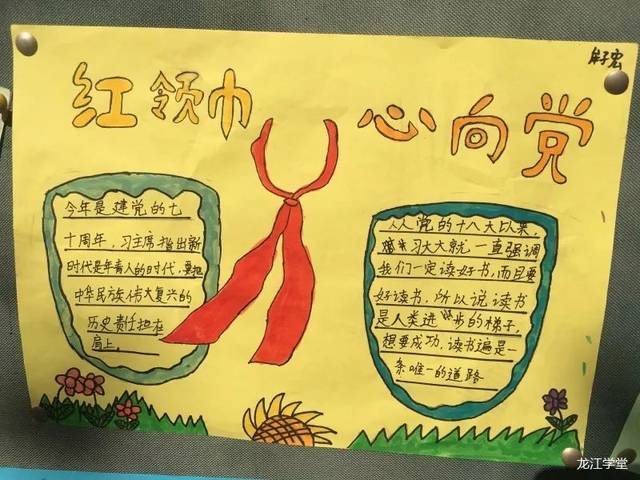 牟子宏
红领巾 心向党
今年是建党的七
十周年，习主席指出新
时代是年青人的时代，要把
中华民族伟大复兴的
历史责任担在
肩上。
从从党的十八大以来，
习大大就一直强调
我们一定读好书，而且要
好读书，所以说读书
是人类进步的梯子，
想要成功，读书遍是一
条唯一的道路
龙江学堂